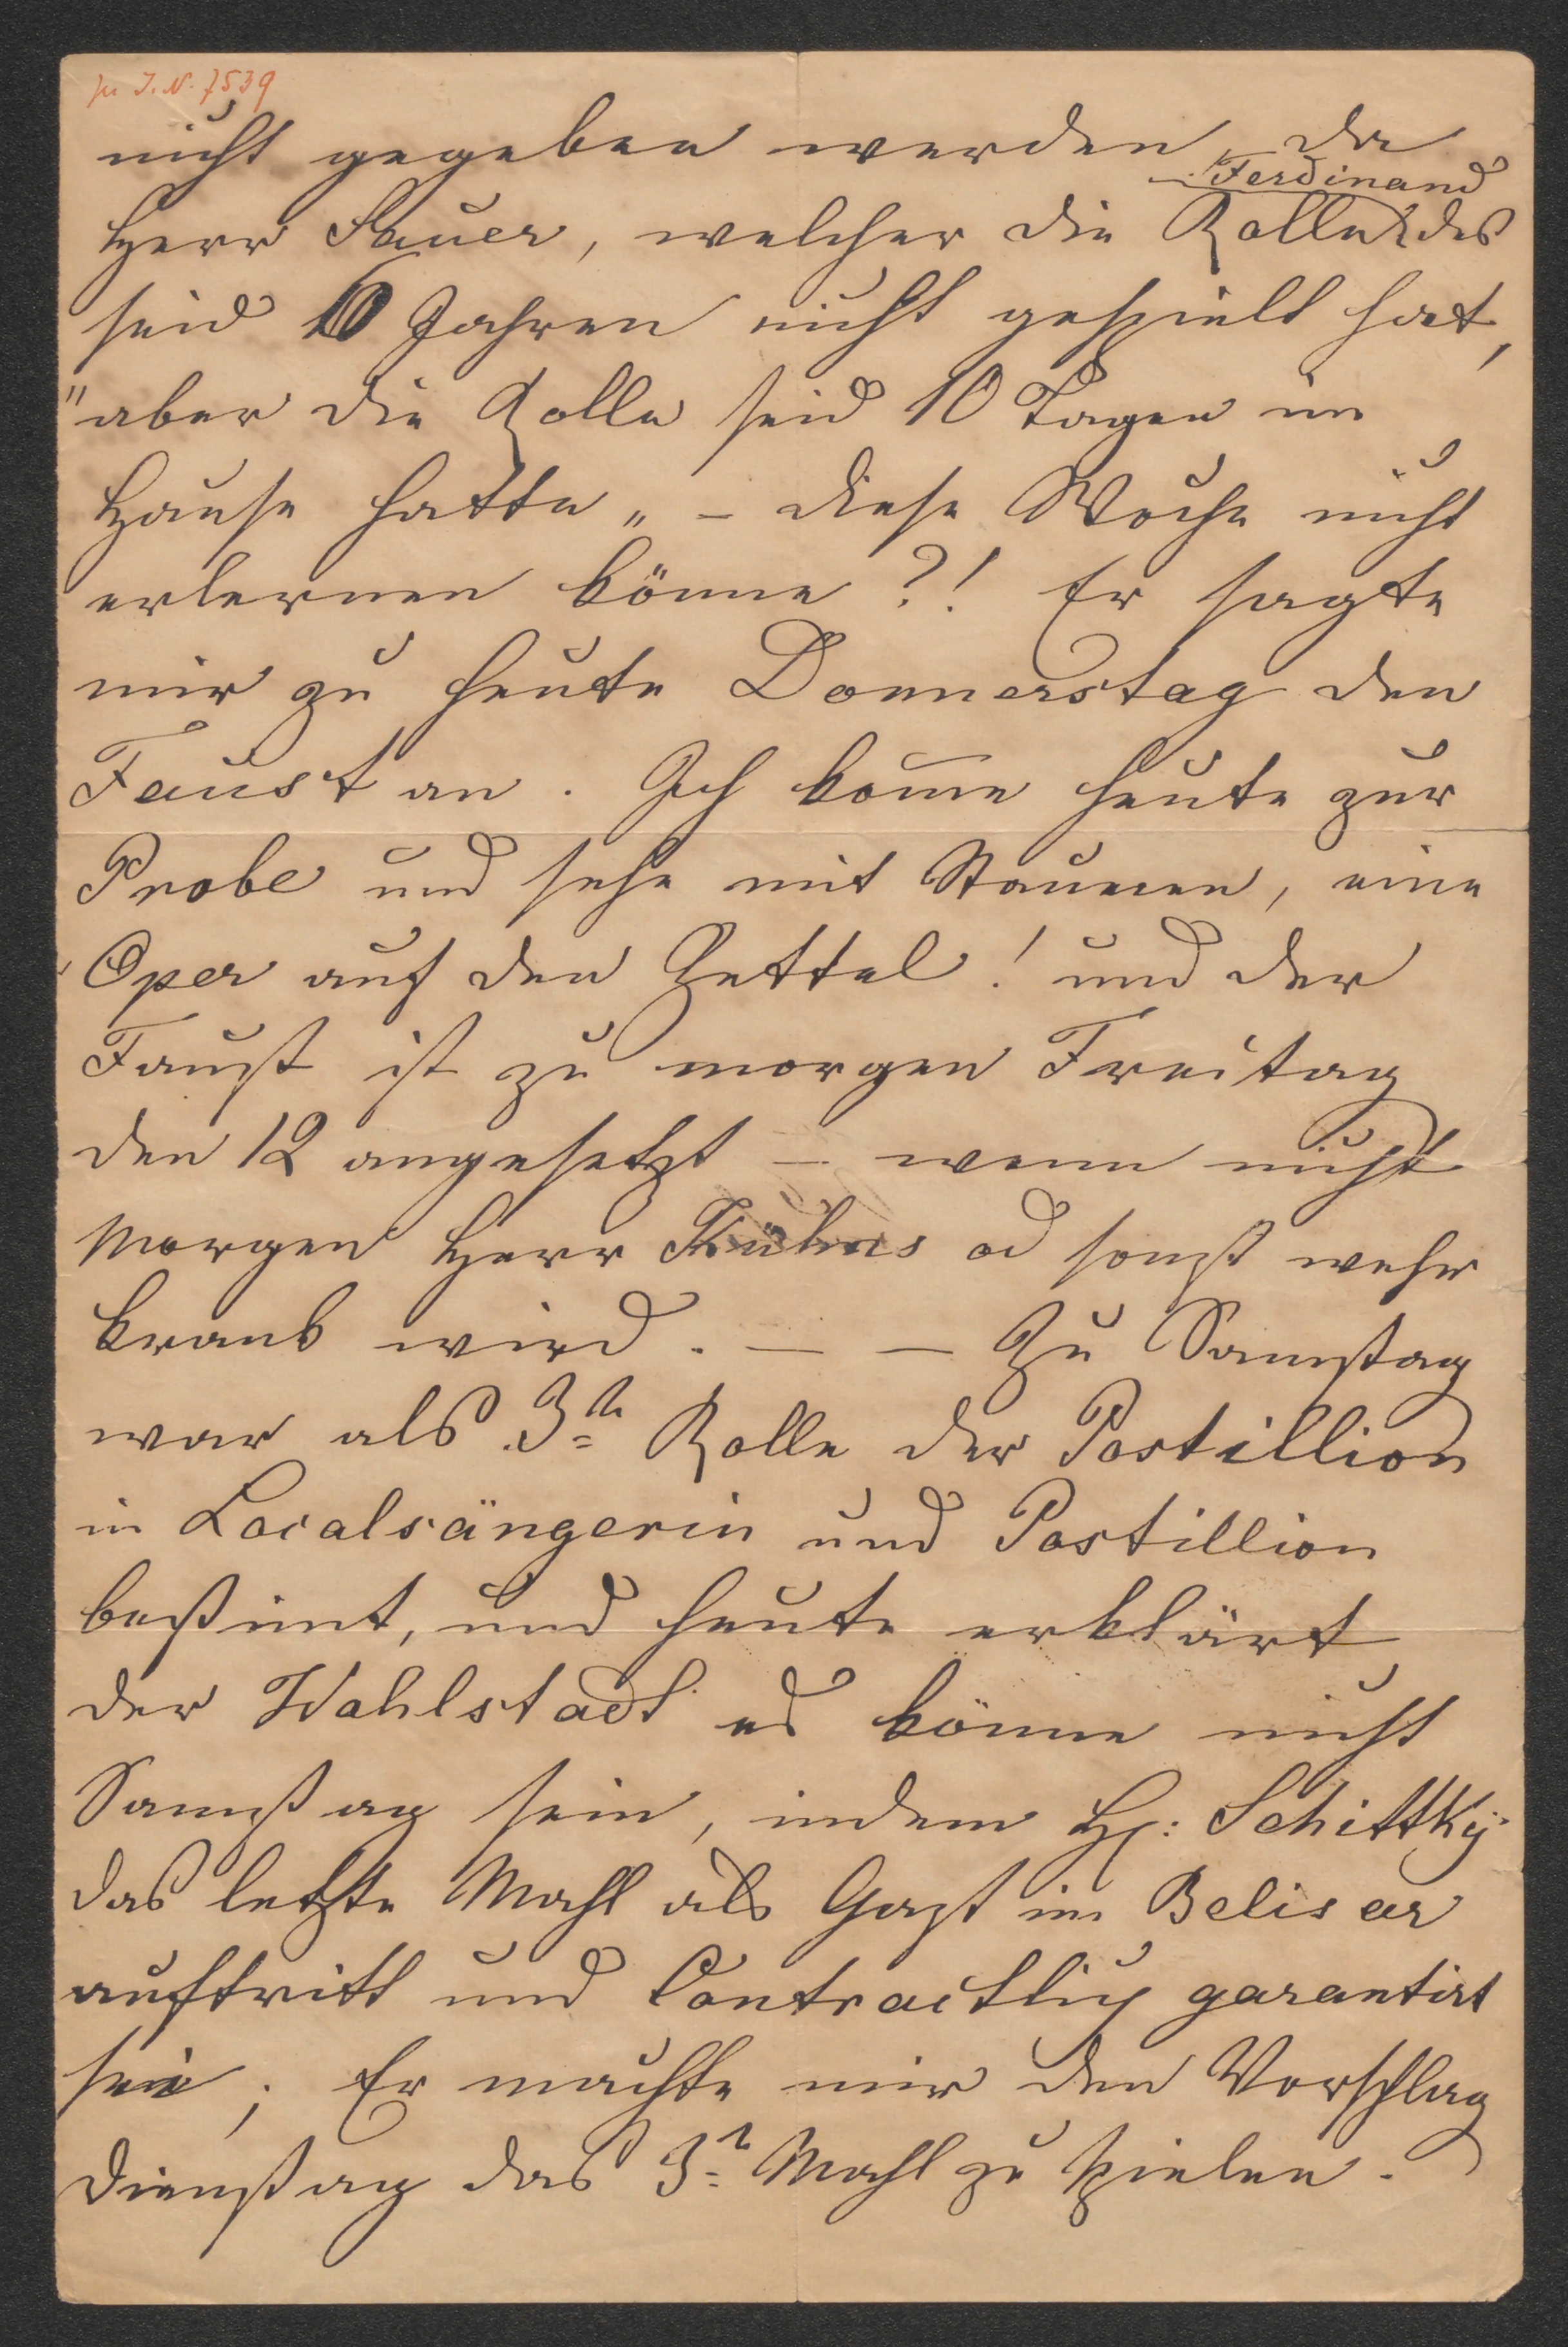 zu I.N. 7539
nicht gegeben werden, da
Ferdinand
Herr Sauer, welcher die Rolle des
seid 6 Jahren nicht gespielt hat,
"aber die Rolle seid 10 Tagen im
Hause hatte„ – diese Woche nicht
erlernen könne?! Er sagte
mir zu heute Donnerstag den
Faust an. Ich kom̅e heute zur
Probe und sehe mit Staunen, eine
Oper auf den Zettel! und der
Faust ist zu morgen Freitag
den 12 angesetzt – wenn nicht
Morgen Herr Kühns od sonst wehr
krank wird. – – Zu Samstag
war als 3te Rolle der Postillion
in Localsängerin und Postillion
bestim̅t, und heute erklärt
der Wahlstadt es könne nicht
Samstag sein, indem H: Schittky
das letzte Mahl als Gast im Belisar
auftritt und Contractlich garantirt
sei; Er machte mir den Vorschlag
Dienstag das 3t Mahl zu spielen.